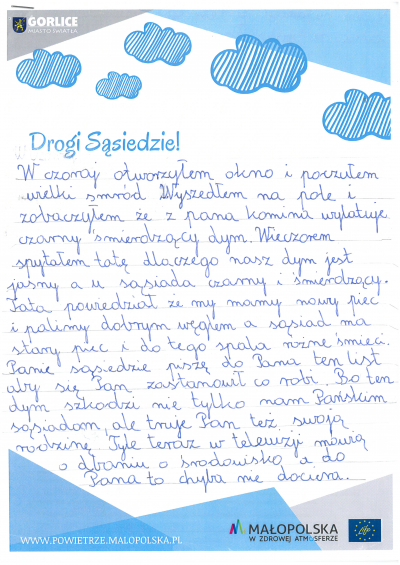 GORLICE
MIASTO ŚWIATŁA
Drogi Sąsiedzie!
Wczoraj otworzyłem okno i poczułem
wielki smród. Wyszedłem na pole i
zobaczyłem że z pana komina wylatuje
czarny śmierdzący dym. Wieczorem
spytałem tatę dlaczego nasz dym jest
jasny a u sąsiada czarny i śmierdzący.
Tata powiedział że my mamy nowy piec
i palimy dobrym węglem a sąsiad ma
stary piec i do tego spala różne śmieci.
Panie sąsiedzie piszę do Pana ten list
aby się Pan zastanowił co robi. Bo ten
dym szkodzi nie tylko nam Pańskim
sąsiadom, ale truje Pan też swoją
rodzinę. Tyle teraz w telewizji mówią
o dbaniu o środowisko a do
Pana to chyba nie dociera.
WWW.POWIETRZE.MALOPOLSKA.PL
MAŁOPOLSKA
W ZDROWEJ ATMOSFERZE
life